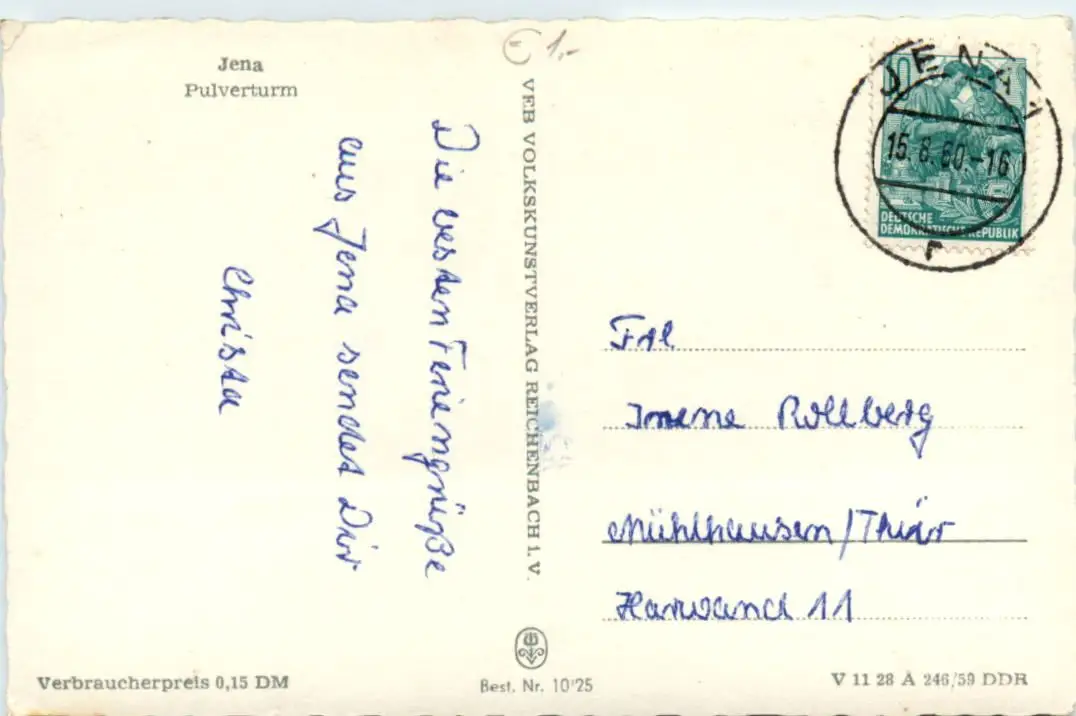 Jena
Pulverturm
€ 1,-
Die besten Feriengrüße
aus Jena sendet Dir
Christa
VEB VOLKSKUNSTVERLAG REICHENBACH i. V.
10
DEUTSCHE
DEMOKRATISCHE REPUBLIK
JENA 1
15.8.60.-16
r
Frl
Irene Rollberg
Mühlhausen/Thür
Harwand 11
Verbraucherpreis 0,15 DM
Best. Nr. 10'25
V 11 28 A 246/59 DDR